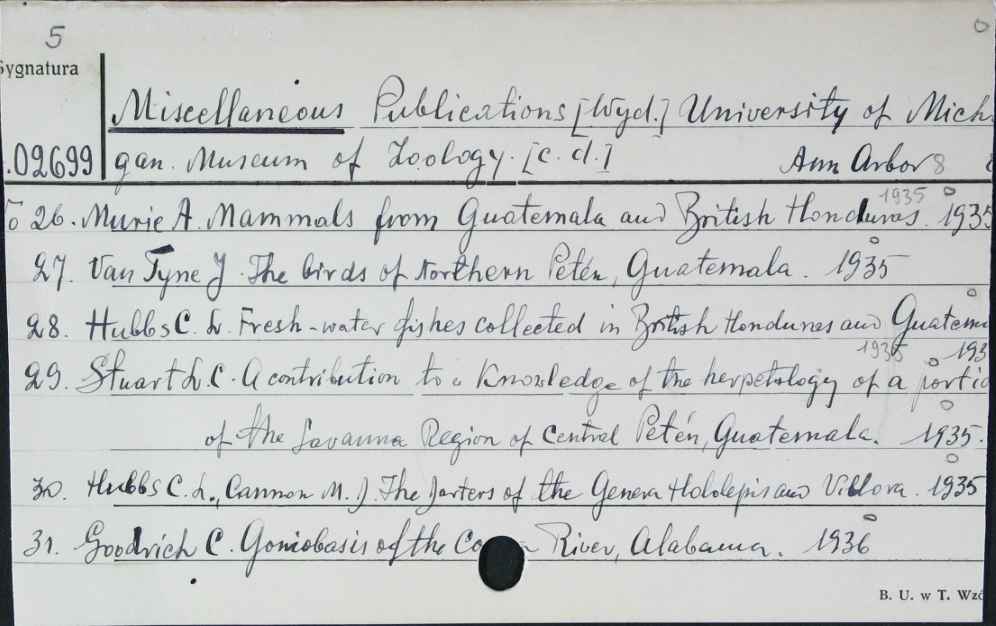 5
Sygnatura
Miscellaneous Publications [Wyd.] University of Mich
.02699 gan. Museum of Zoology. [c. d.] Ann Arbor 8
1935
26. Murie A. Mammals from Guatemala and British Honduras. 1935
27. Van Tyne J. The birds of Northern Petén, Guatemala. 1935
28. Hubbs C. L. Fresh-water fishes collected in British Honduras and Guatem
1935 193
29. Stuart L. C. A contribution to a Knowledge of the herpetology of a portio
of the Savanna Region of Central Petén, Guatemala. 1935.
30. Hubbs C. L., Cannon M. J. The Darters of the Genera Hololepis and Villora. 1935
31. Goodrich C. Goniobasis of the River, Alabama. 1936
B. U. w T. Wzó